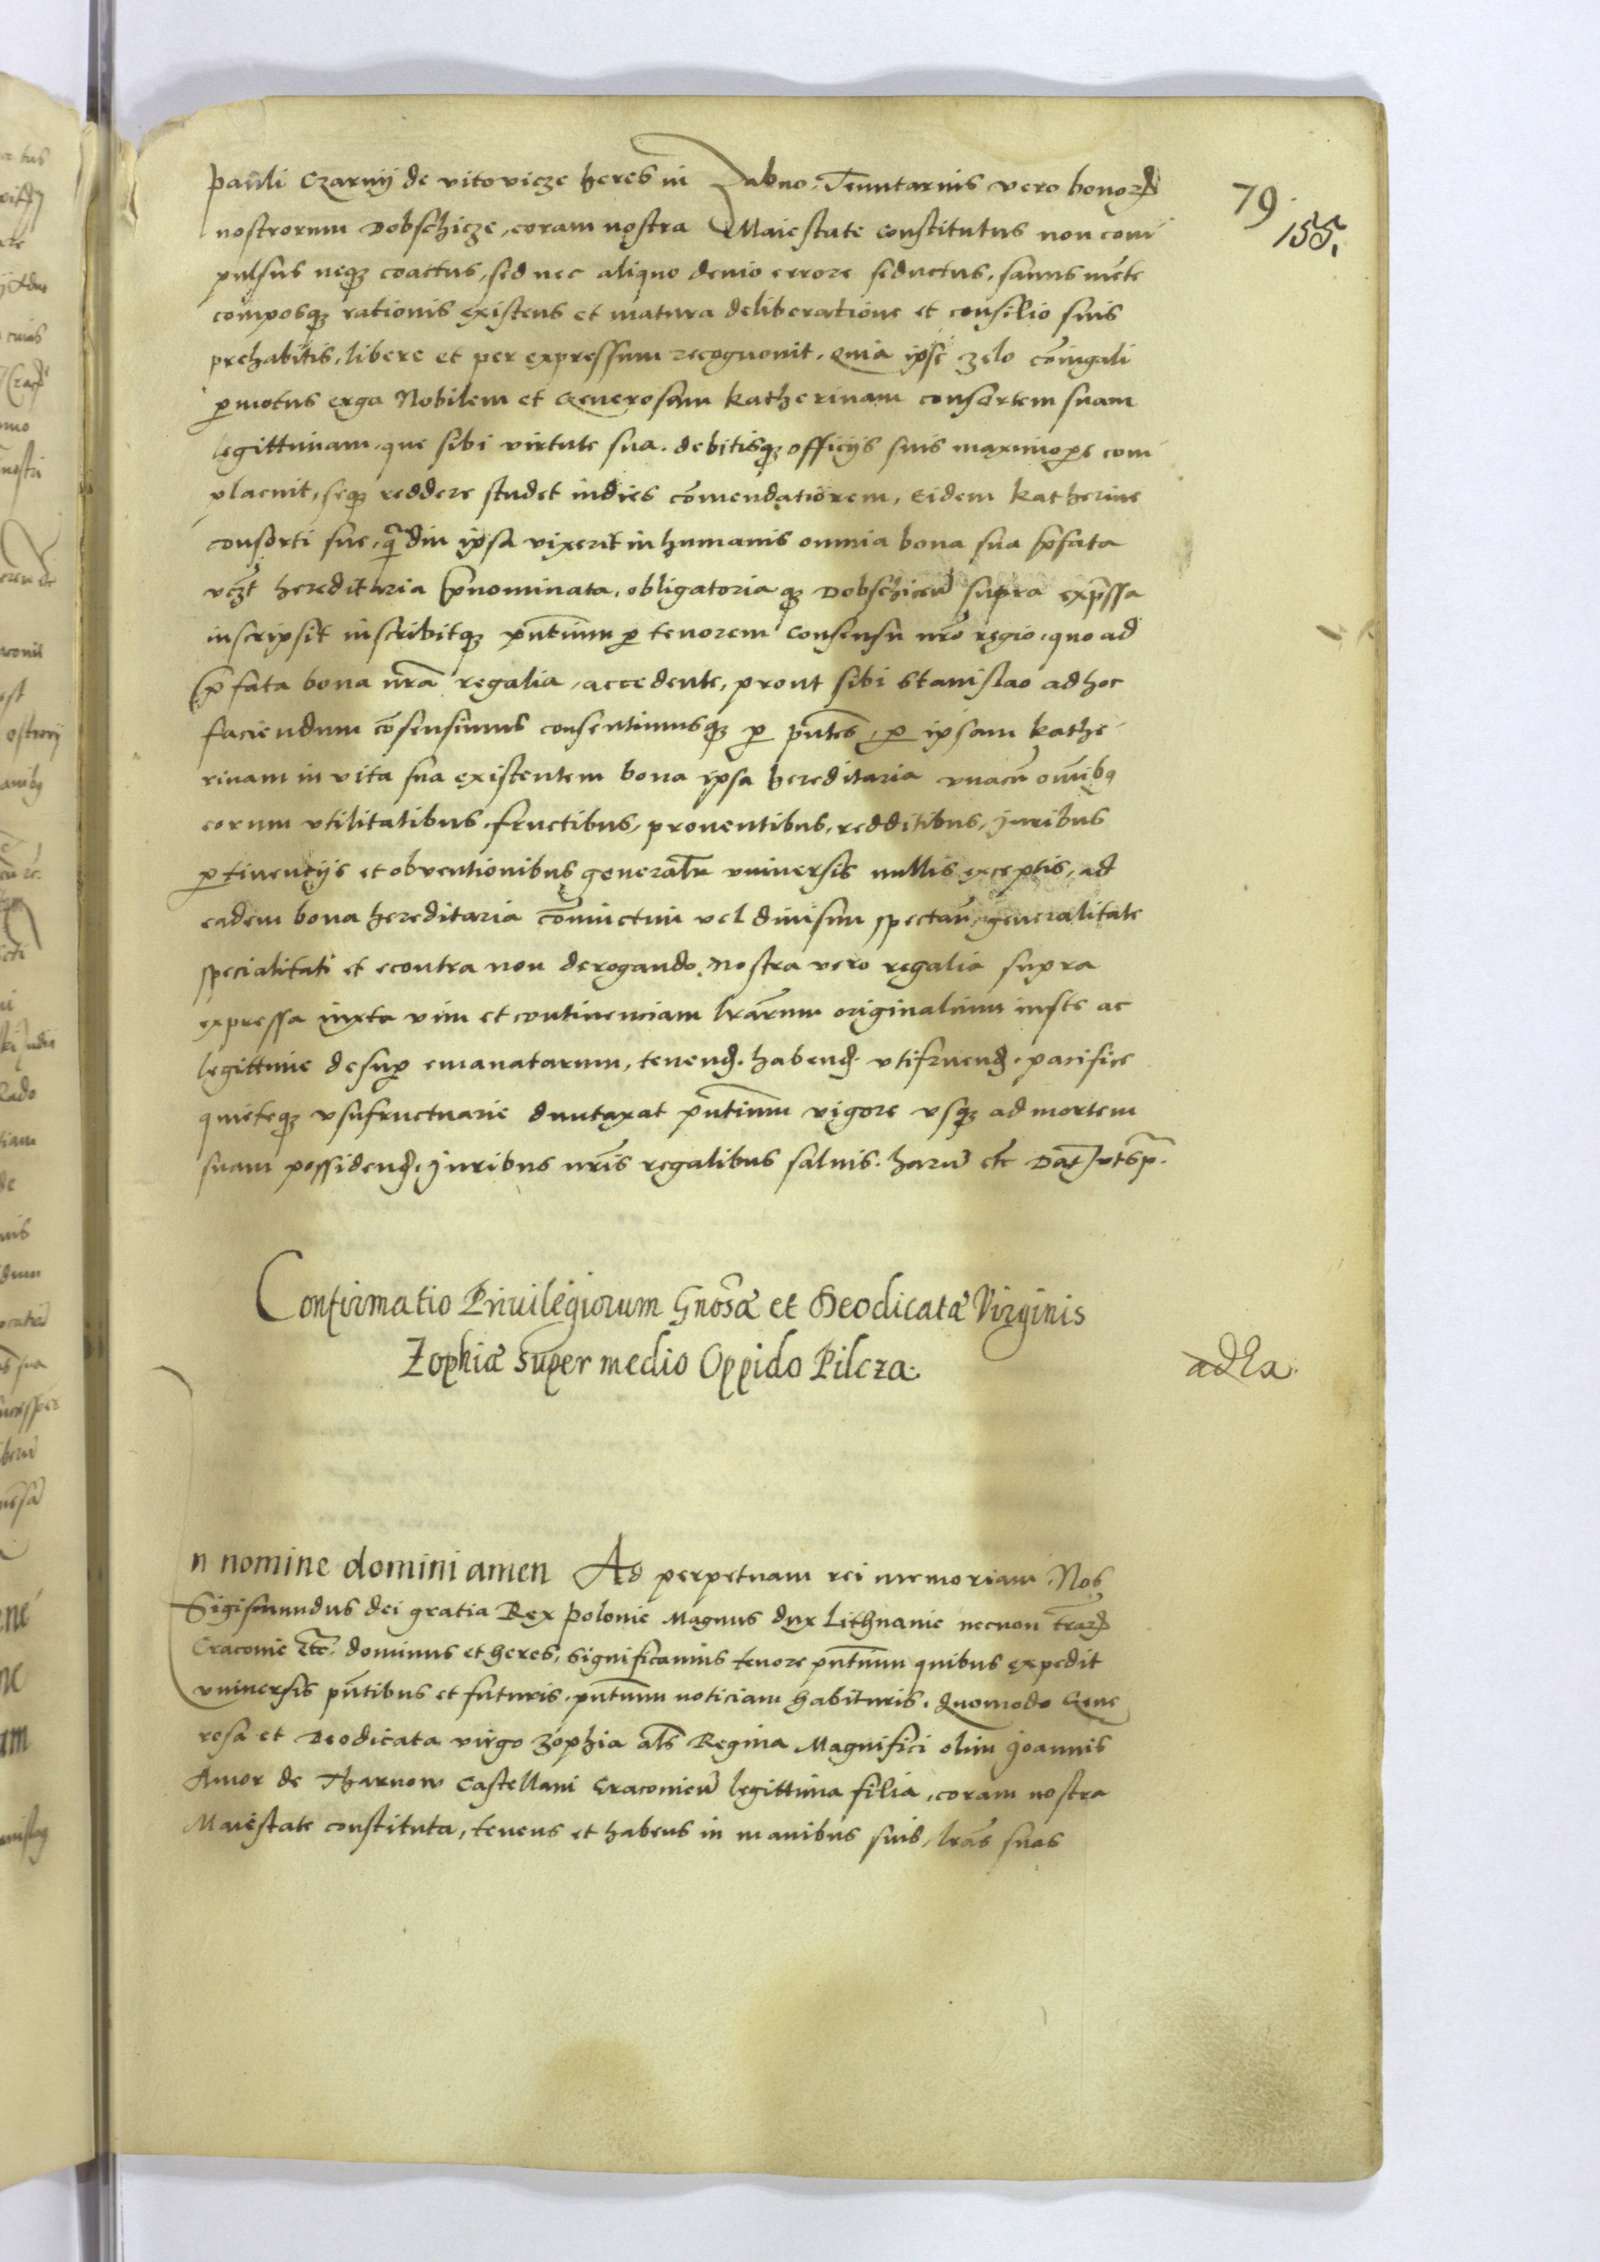 79.
155.
pauli Czarnij de vitovicze heres in Dabno. Tenutarius vero bonorum
nostrorum Dobschicze, coram nostra Maiestate constitutus non com
pulsus neqz coactus, sed nec aliquo devio errore seductus, sanus mēte
composqz rationis existens et matura deliberatione et consilio suis
prehabitis, libere et per expressum recognouit. Quia ipse zelo cōiugali
pmotus erga Nobilem et Generosam Katherinam consortem suam
legittimam, que sibi virtute sua, debitisqz officijs suis maximopere com
placuit, seqz reddere studet indies cōmendatiorem, Eidem Katherine
consorti sue, q̄ diu ipsa vixerit in humanis omnia bona sua p̄fata
vczt hereditaria p̄nominata, obligatoria qz Dobschiceñ supra exp̄ssa
inscripsit inscribitqz p̄ntium p tenorem Consensu nr̄o regio, quo ad
p̄fata bona nr̄a regalia, accedente, prout sibi Stanislao ad hoc
faciendum cōsensimus consentimusqz p p̄ntes, p ipsam Kathe
rinam in vita sua existentem bona ipsa hereditaria vnacū om̄ibq
eorum vtilitatibus, fructibus, prouentibus, redditibus, juribus
ptinencijs et obventionibus generalr̄ vniuersis nullis exceptis, ad
eadem bona hereditaria cōiunctim vel diuisim spectañ, generalitate
specialitati et econtra non derogando. Nostra vero regalia supra
expressa iuxta vim et continenciam lr̄arum originalium iuste ac
legittime desup emanatarum, tenend. habend. vtifruend. pacifice
quieteqz vsufructuarie duntaxat p̄ntium vigore vsqz ad mortem
suam possidend. Juribus nr̄is regalibus saluis. harū etc Dat vt sp̄.
Confirmatio Priuilegiorum Gnōsæ et Deodicatæ Virginis
Zophiæ super medio Oppido Pilcza.
n nomine domini amen Ad perpetuam rei memoriam. Nos
Sigismundus dei gratia Rex Polonie Magnus dux Lithuanie necnon tr̄arum
Cracouie etc. dominus et heres, significamus tenore p̄ntium quibus expedit
vniuersis p̄ntibus et futuris, p̄ntium noticiam habituris. Quomodo Gene
rosa et Deodicata virgo Zophia als Regina Magnifici olim Joannis
Amor de Tharnow Castellani Cracouieñ legittima filia, coram nostra
Maiestate constituta, tenens et habens in manibus suis, lr̄as suas